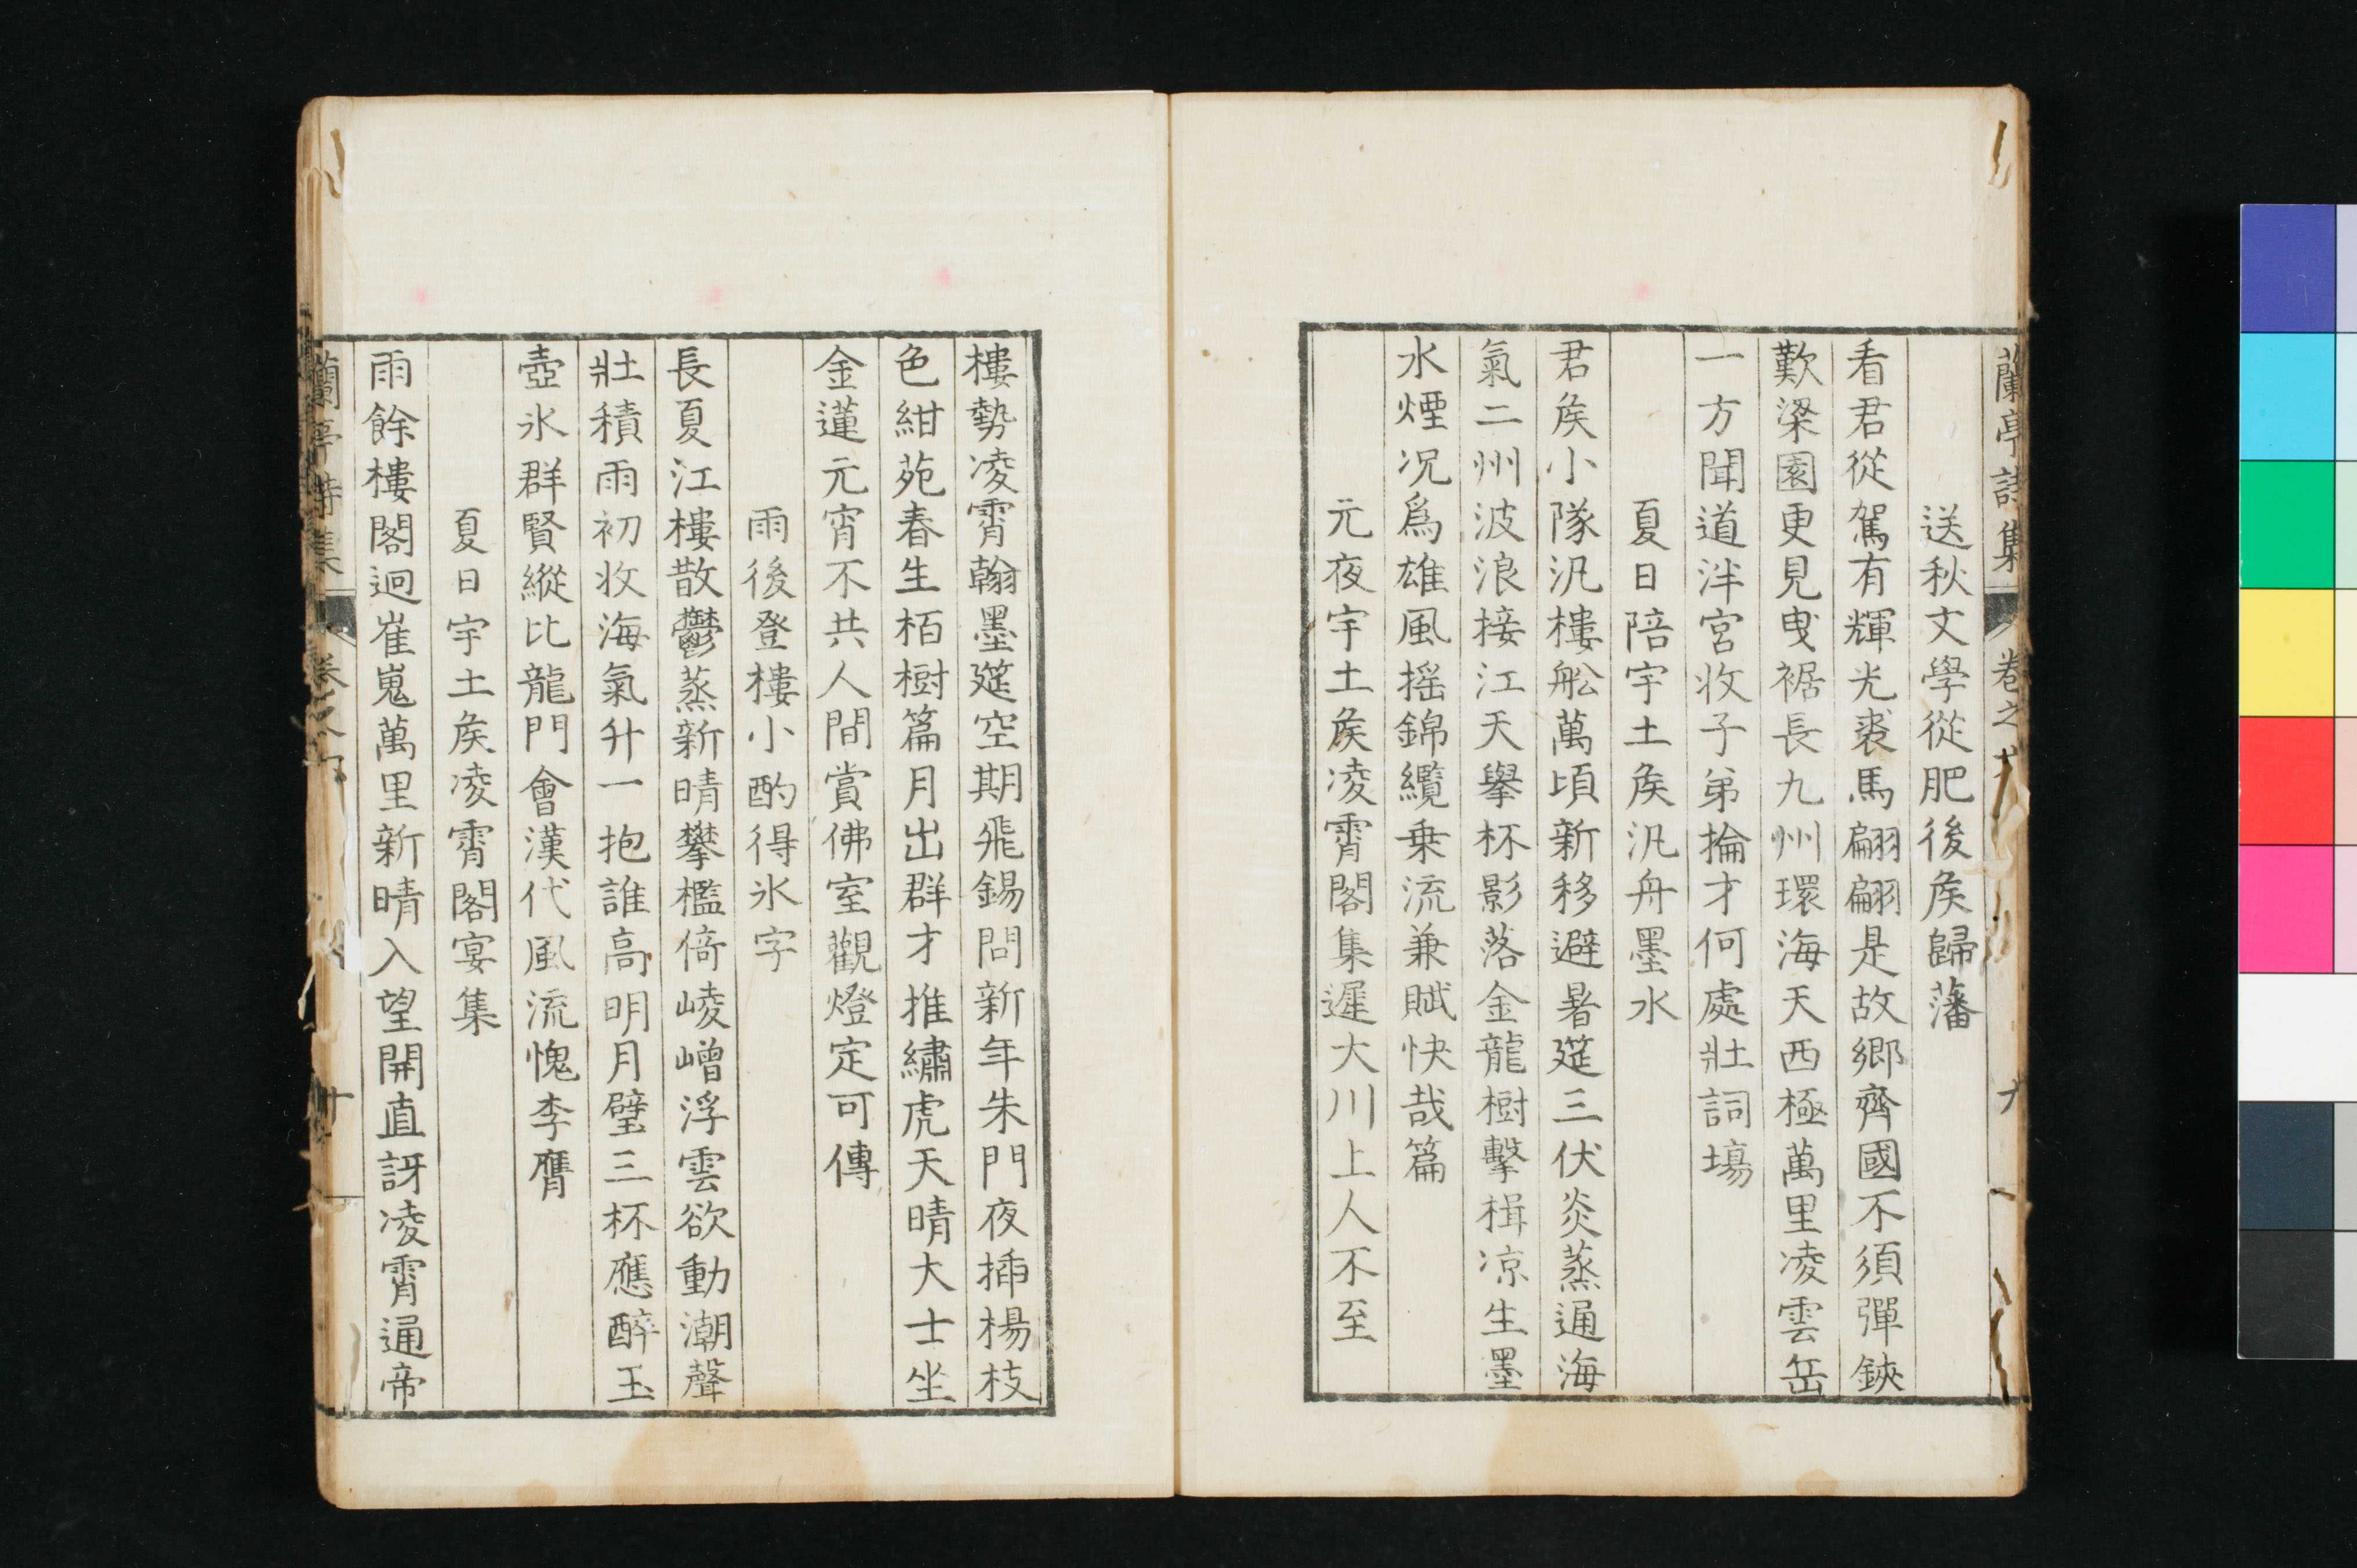 蘭亭詩集 卷之
送秋文學從肥後矦歸藩
看君從駕有輝光裘馬翩翩是故鄉齊國不須彈鋏
歎梁園更見曳裾長九州環海天西極萬里凌雲岳
一方聞道泮宮收子弟掄才何處壯詞塲
夏日陪宇土矦汎舟墨水
君矦小隊汎樓舩萬頃新移避暑筵三伏炎蒸通海
氣二州波浪接江天擧杯影落金龍樹擊楫凉生墨
水煙况爲雄風搖錦纜乗流兼賦快哉篇
元夜宇土矦凌霄閣集遲大川上人不至
樓勢凌霄翰墨筵空期飛錫問新年朱門夜揷楊枝
色紺苑春生栢樹篇月出群才推繡虎天晴大士坐
金蓮元宵不共人間賞佛室觀燈定可傳
雨後登樓小酌得氷字
長夏江樓散鬱蒸新晴攀檻倚崚嶒浮雲欲動潮聲
壯積雨初收海氣升一抱誰高明月璧三杯應醉玉
壺氷群賢縱比龍門會漢代風流愧李膺
夏日宇土矦凌霄閣宴集
雨餘樓閣迥崔嵬萬里新晴入望開直訝凌霄通帝
蘭亭詩集 卷之 十